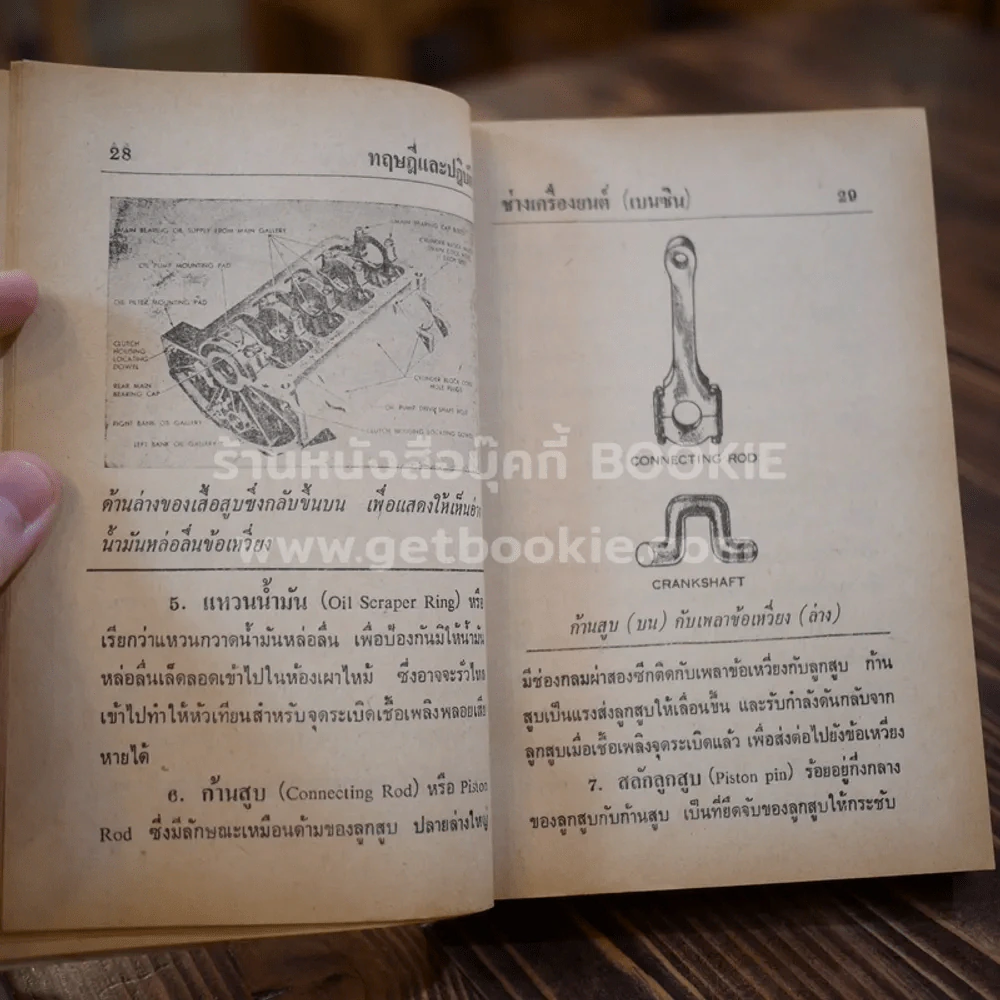 28
ทฤษฎีและปฏิบัติ
MAIN BEARING OIL SUPPLY FROM MAIN GALLERY
MAIN BEARING CAP
OIL PUMP MOUNTING PAD
OIL FILTER MOUNTING PAD
CLUTCH
HOUSING
LOCATING
DOWEL
REAR MAIN
BEARING CAP
RIGHT BANK OIL GALLERY
LEFT BANK OIL GALLERY
CYLINDER BLOCK CORE
HOLE PLUGS
OIL PUMP DRIVE SHAFT HOLE
CLUTCH HOUSING LOCATING DOWEL
ด้านล่างของเสื้อสูบซึ่งกลับขึ้นบน เพื่อแสดงให้เห็น
น้ำมันหล่อลื่นข้อเหวี่ยง
5. แหวนน้ำมัน (Oil Scraper Ring) หรือ
เรียกว่าแหวนกวาดน้ำมันหล่อลื่น เพื่อป้องกันมิให้น้ำมัน
หล่อลื่นเล็ดลอดเข้าไปในห้องเผาไหม้ ซึ่งอาจจะรั่วไหล
เข้าไปทำให้หัวเทียนสำหรับจุดระเบิดเชื้อเพลิงพลอยเสีย
หายได้
6. ก้านสูบ (Connecting Rod) หรือ Piston
Rod ซึ่งมีลักษณะเหมือนด้ามของลูกสูบ ปลายล่างใหญ่
ช่างเครื่องยนต์ (เบนซิน)
29
CONNECTING ROD
CRANKSHAFT
ก้านสูบ (บน) กับเพลาข้อเหวี่ยง (ล่าง)
มีช่องกลมผ่าสองซีกติดกับเพลาข้อเหวี่ยงกับลูกสูบ ก้าน
สูบเป็นแรงส่งลูกสูบให้เลื่อนขึ้น และรับกำลังดันกลับจาก
ลูกสูบเมื่อเชื้อเพลิงจุดระเบิดแล้ว เพื่อส่งต่อไปยังข้อเหวี่ยง
7. สลักลูกสูบ (Piston pin) ร้อยอยู่กึ่งกลาง
ของลูกสูบกับก้านสูบ เป็นที่ยึดจับของลูกสูบให้กระชับ
ร้านหนังสือบุ๊คกี้ BOOKIE
www.getbookie.com